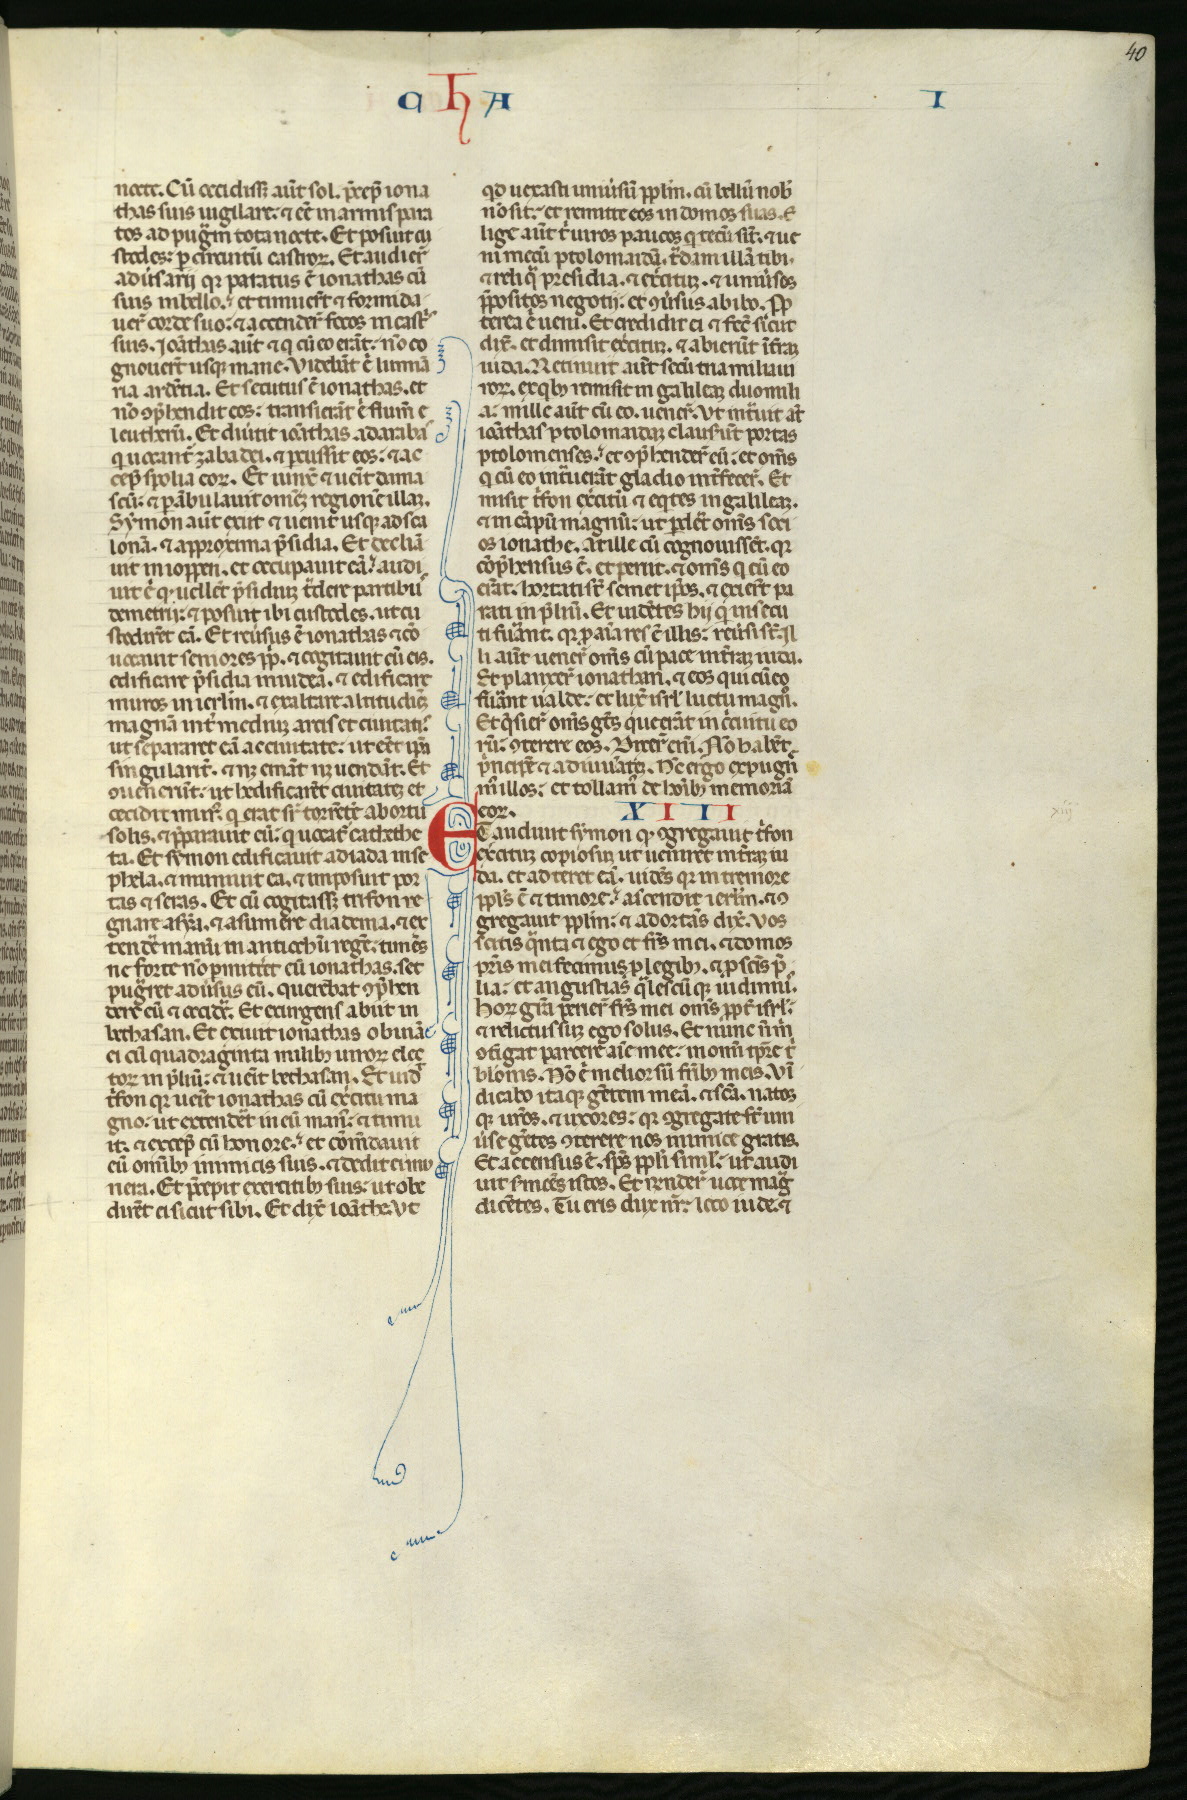 40
CHA
I
nocte. Cū occidissꝫ aūt sol. p̄cep̄ iona
thas suis uigilare. ⁊ eē in armis para
tos ad pugnā tota nocte. Et posuit cu
stodes: p̱ circuitū castroꝝ. Et audierˉ
aduˉsarij qꝛ paratus ē ionathas cū
suis in bello: et timuerˉt ⁊ formida
uerˉ corde suo: ⁊ accenderˉ focos in castˉ
suis. Ionˉathas aūt ⁊ q̄ cū eo erāt: nō co
gnouerˉt usqꝫ mane. Videbāt ē lumīa
ria ardētia. Et secutus ē ionathas. et
nō ꝯp̄hendit eos: transierāt ē flumē e
leutherū. Et diuˉtit ionˉathas ad araba
q uocantˉ zabadei. ⁊ p̱cussit eos: ⁊ ac
cep̄ spolia eoꝝ. Et iunxˉ ⁊ uēit dama
scū: ⁊ p̱ābulauit omēꝫ regionē illaꝫ.
Symon aūt exiit ⁊ uenit usqꝫ ad sca
lonā. ⁊ ap̱p̱roxima p̄sidia. Et declīa
uit in ioppen. et occupauit eā. audi
uit ē qꝛ uellēt p̄sidiuꝫ tˉdere partibuˢ
demetrij: ⁊ posuit ibi custodes. ut cu
stodirēt eā. Et reuˉsus ē ionathas ⁊ cō
uocauit seniores pp̄li. ⁊ cogitauit cū eis.
edificare p̄sidia in iudea. ⁊ edificare
muros in ierl̄m. ⁊ exaltare altitudiēꝫ
magnā intˉ mediuꝫ arcis et ciuitatˉ.
ut separaret eā a ciuitate: ut eēt ip̄a
singularitˉ. ⁊ nꝫ emāt nꝫ uendāt. Et
ꝯuenerūt: ut hedificarēt ciuitateꝫ et
cecidit murˀ. q̄ erat sr̄ torrētē ab ortu
solis. ⁊ p̄parauit eū. q̄ uocatˉ caphethe
ta. Et symon edificauit adiada in se
phela. ⁊ muniuit ea. ⁊ imposuit por
tas ⁊ seras. Et cū cogitassꝫ trifon re
gnare asye. ⁊ asumere diadema. ⁊ ex
tendē manū in antiochū regē: timēs
ne forte nō p̱mittēt eū ionathas. set
pugˉret aduˉsus eū. querebat ꝯp̄hen
dere eū ⁊ occidē. Et exurgens abiit in
bethasan. Et exiuit ionathas obuiā
ei cū quadraginta milibꝫ uiroꝝ elec
toꝝ in p̄liū: ⁊ uēit bethasan. Et uidˉ
tˉfon qꝛ uēit ionathas cū exˉcitu ma
gno. ut extendēt in eū manˀ: ⁊ timu
it. ⁊ excep̄ cū honore. et cōmēdauit
eū omībꝫ inimicis suis. ⁊ dedit ei mu
nera. Et p̄cepit exercitibꝫ suis: ut obe
dirēt ei sicut sibi. Et dix̄ ionˉathe. Vt
qd̄ uexasti uniuˉsū pp̄lm. cū bellū nobˉ
nō sit: et remitte eos in domos suas. E
lige aūt tˉ uiros paucos q̄ tecū sīt. ⁊ ue
ni mecū ptolomaidā. tˉdam illā tibi.
⁊ reliq̄ presidia. ⁊ exˉcituꝫ. ⁊ uniuˉsos
p̄positos negotij. et ꝯuˉsus abibo. P̱p
terea ē ueni. Et credidit ei ⁊ fec̄ sicut
dix̄. et dimisit exˉcituꝫ. ⁊ abierūt ī tˉraꝫ
iuda. Retinuit aūt secū tria milia ui
roꝝ. ex qbꝫ remisit in galileaꝫ duo mili
a: mille aūt cū eo. uenerˉ. Vt intˉuit aūt
ionˉathas ptolomaidaꝫ clauserˉūt portas
ptolomenses. et ꝯp̄henderˉ eū: et omēs
q̄ cū eo intˉuerāt gladio intˉfecerˉ. Et
misit tˉfon exˉcitū ⁊ eqˉtes in galileaꝫ.
⁊ in cāpū magnū: ut p̱dēt omēs soci
os ionathe. At ille cū cognouissēt. qꝛ
cōp̄hensus ē. et periit. ⁊ omēs q̄ cū eo
erāt. hortati sˉt semet ip̄os. ⁊ exierˉt pa
rati in p̄liū. Et uidētes hij q̄ insecu
ti fuˉant. qꝛ p̱ aīa res ē illis: reuˉsi sˉt. Il
li aūt uenerˉ omēs cū pace in tˉraꝫ iuda.
Et planxerˉ ionathan. ⁊ eos qui cū eo
fuˉant ualde: et luxˉ isrl̄ luctu magnˉ.
Et q̄sierˉ omēs gētes que erāt in circuitu eo
rū: ꝯterere eos. Dixerˉ enī. Nō habēt
p̄ncipē ⁊ adiuuātē. Nˉc ergo expugnˉ
mˀ illos: et tollamˀ de hoībꝫ memoriā
eoꝝ. XIII
Et audiuit symon qꝛ ꝯgregauit tˉfon
exˉcituꝫ copiosuꝫ ut ueniret in tˉraꝫ iu
da. et ad teret eā. uidēs qꝛ in tremore
pp̄ls ē ⁊ timore. ascendit ierl̄m. ⁊ ꝯ
gregauit pp̄lm: ⁊ adortās dix̄. Vos
scitis q̄nta ⁊ ego et frˉs mei. ⁊ domos
prˉis mei fecimus p̱ legibꝫ. ⁊ p̱ scīs p̄
lia: et angustias q̄les cūqꝫ uidimˀ.
Horˉ grˉa perierˉ frˉs mei omēs p̱pˉt isrl̄:
⁊ relictus suꝫ ego solus. Et nunc nˉ mˉ
ꝯtigat parcere aīe mee: in omi tp̄re tˉ
blonis. Nō ē melior sū frˉibꝫ meis. Vī
dicabo itaqꝫ gētem meā. ⁊ scˉa. natos
qꝫ urˉos. ⁊ uxores: qꝛ ꝯgregate sˉt uni
uˉse gētes ꝯterere nos inimice gratia.
Et accensus ē. spˉs pp̄li simlˉ: ut audi
uit sˉmōes istos. Et rˉnderˉ uoce magˉ
dicētes. Tu eris dux nrˉ: loco iude. ⁊
xiij